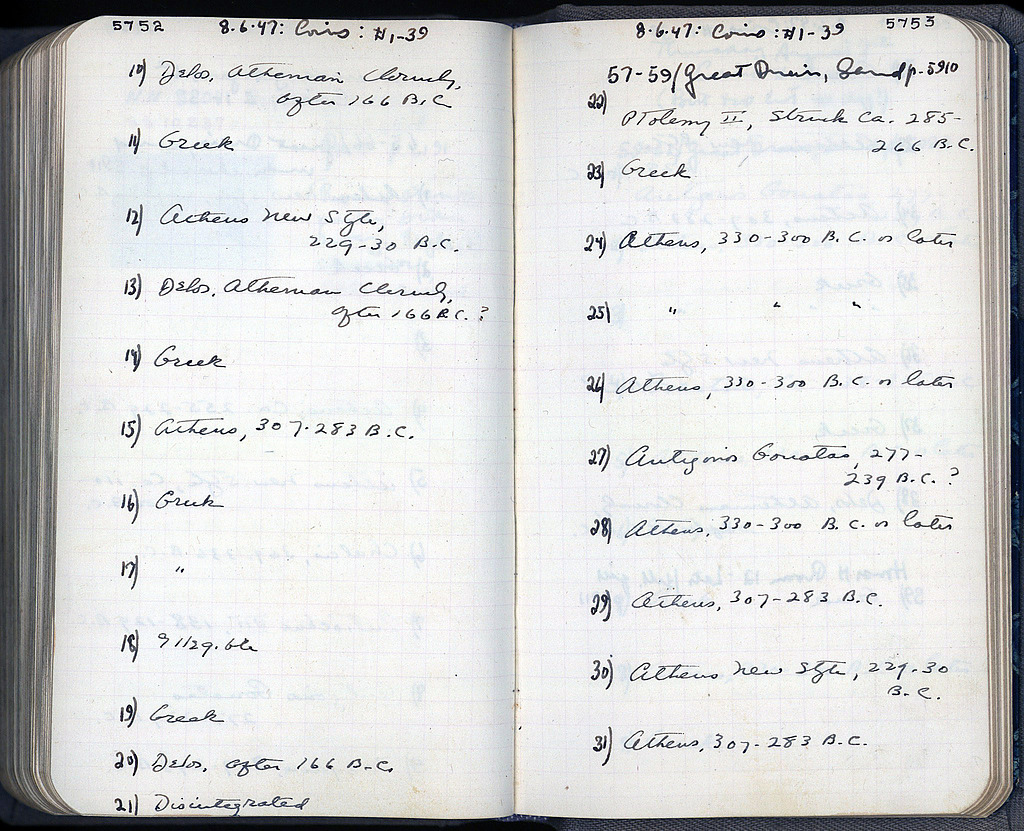 5752
8.6.47: Coins: #1-39
10) Delos, Athenian Cleruchy,
after 166 B.C
11) Greek
12) Athens New Style,
229-30 B.C.
13) Delos, Athenian Cleruchy,
after 166 B.C. ?
14) Greek
15) Athens, 307-283 B.C.
16) Greek
17) "
18) Illegible
19) Greek
20) Delos, after 166 B.C.
21) Disintegrated
8.6.47: Coins: #1-39
5753
57-59/Great Drain, Sand p. 5910
22) Ptolemy II, Struck ca. 285-
266 B.C.
23) Greek
24) Athens, 330-300 B.C. or later
25) " " "
26) Athens, 330-300 B.C. or later
27) Antigonos Gonatas, 277-
239 B.C. ?
28) Athens, 330-300 B.C. or later
29) Athens, 307-283 B.C.
30) Athens New Style, 229-30
B.C.
31) Athens, 307-283 B.C.